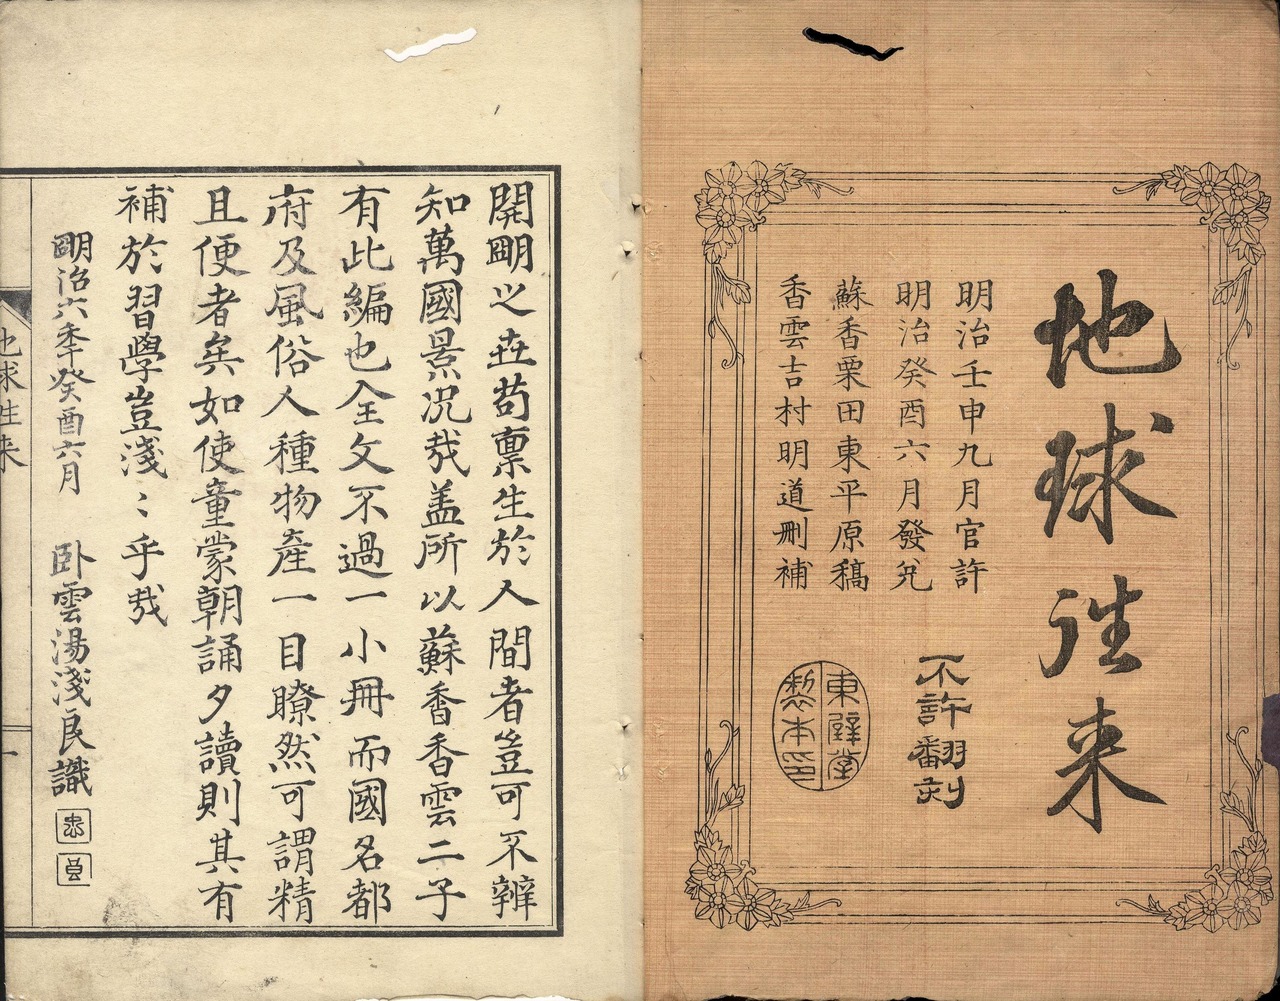 地球往来
明治壬申九月官許
明治癸酉六月發兌
蘇香栗田東平原稿
香雲吉村明道刪補
不許翻刻
東壁堂
製本印
開朙之丗苟禀生於人間者豈可不辨
知萬國景况㢤盖所以蘇香香雲二子
有此編也全文不過一小冊而國名都
府及風俗人種物產一目瞭然可謂精
且便者矣如使童蒙朝誦夕讀則其有
補於習學豈淺〻乎㢤
朙治六季癸酉六月 卧雲湯淺良識
地球往来
一